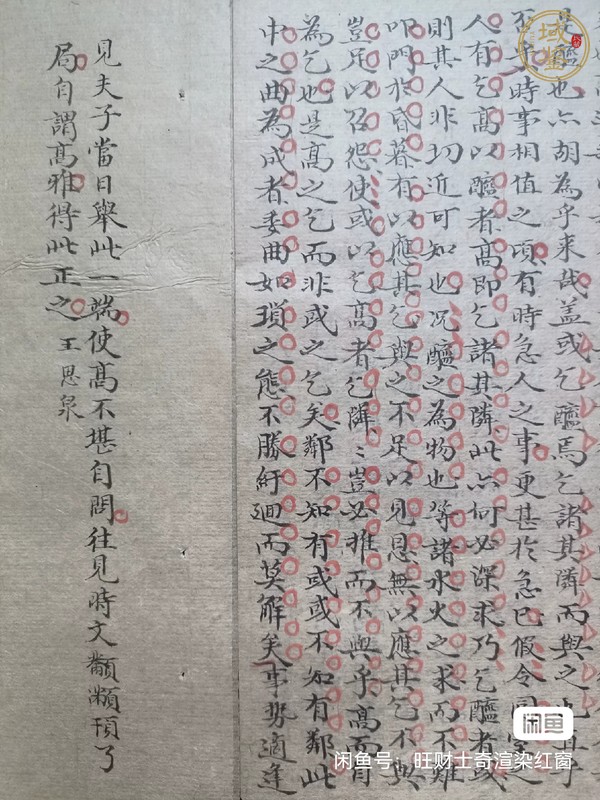 醯也亦胡為乎来哉盖或乞醯焉乞諸其隣而與之也
時事相值之頃有時急人之事更甚於急己假令
人有乞高以醯者高即乞諸其隣此亦何必深求乃乞醯者或
則其人非切近可知也况醯之為物也等諸水火之求而不難
叩門於昏暮有以應其乞與之不足以見恩無以應其乞不與
豈足以召怨使或以乞高者乞隣〻豈必推而不與乎高而肯
為乞也是高之乞而非或之乞矣鄰不知有或或不知有鄰此
中之曲為成者委曲如瑣之態不勝紆廻而莫解矣事勢適逢
見夫子當日舉此一端使高不堪自問往見時文顢頇了
局自謂高雅得此正之 王思泉
闲鱼
闲鱼号：旺财士奇渲染红窗